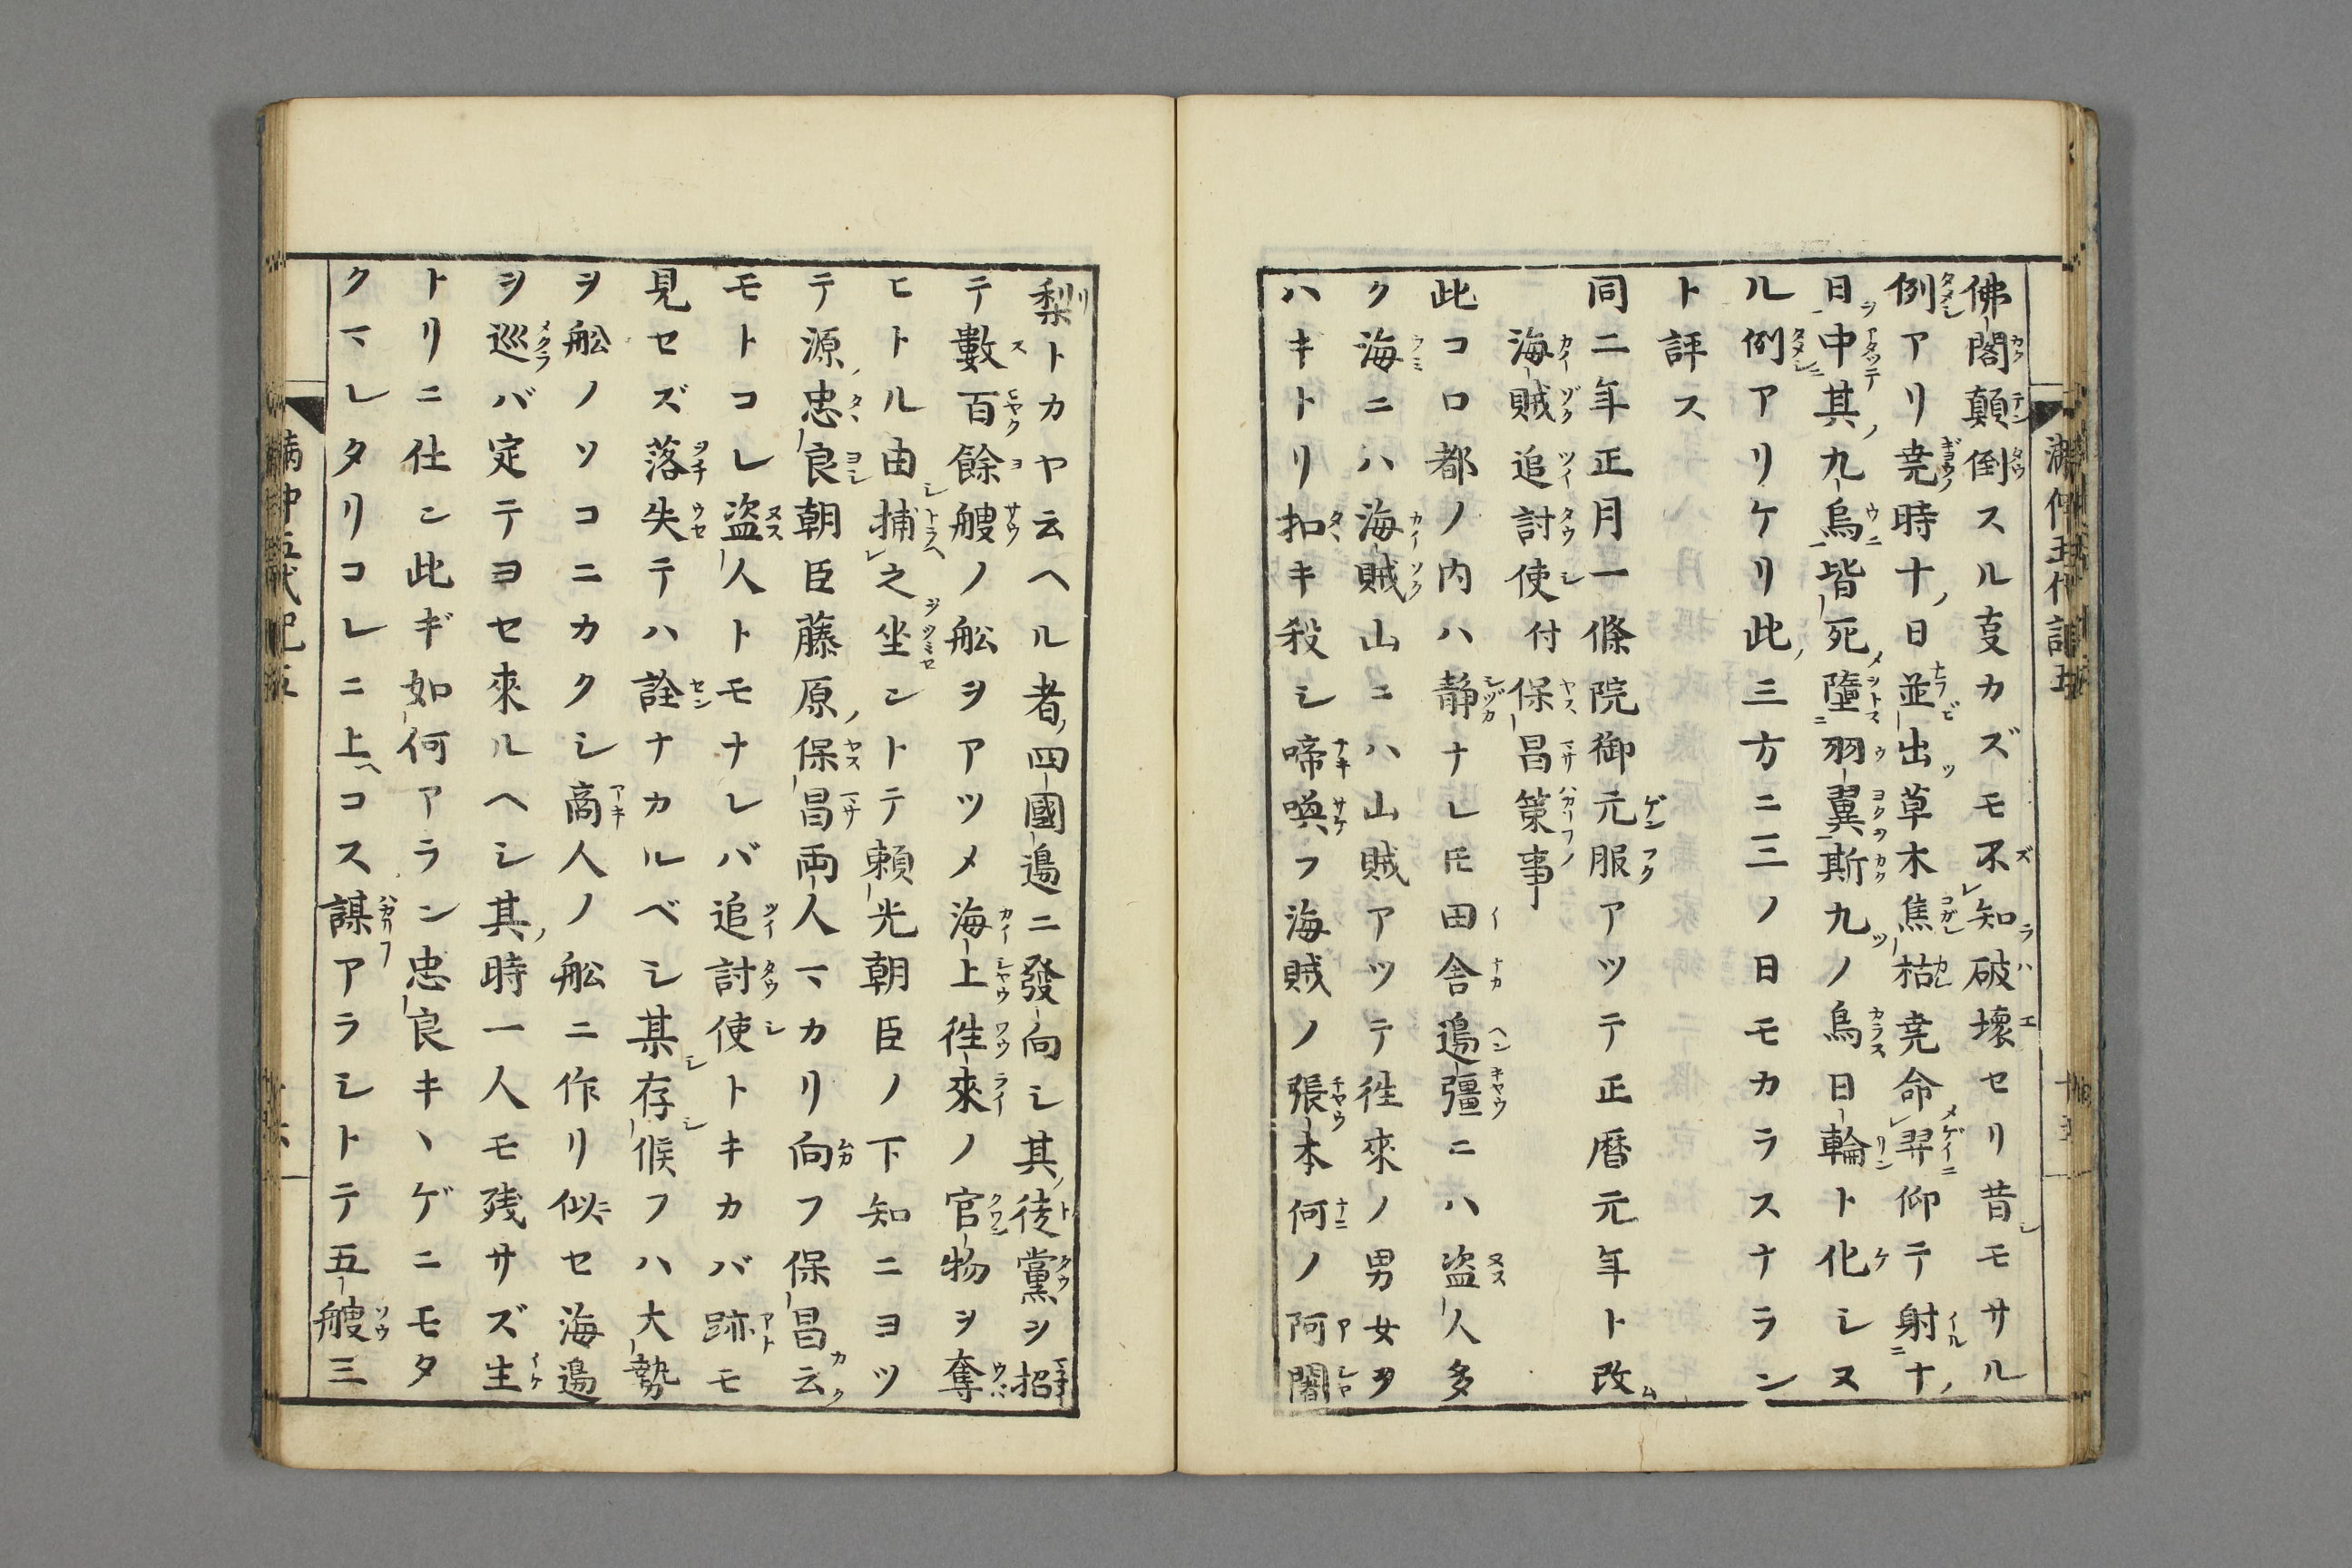 佛閣顛倒スル叓カズモ不知破壞セリ昔モサル
例アリ尭時十日並出草木焦枯尭命羿仰テ射十
日中其九烏皆死墮羽翼斯九ノ烏日輪ト化シヌ
ル例アリケリ此三方ニ三ノ日モカラスナラン
ト評ス
同二年正月一條院御元服アツテ正暦元年ト改
海賊追討使付保昌策事
此コロ都ノ内ハ静ナレ𪜈田舎邉彊ニハ盗人多
ク海ニハ海賊山ニハ山賊アツテ徃來ノ男女ヲ
ハギトリ扣キ殺シ啼喚フ海賊ノ張本何ノ阿闍
梨トカヤ云ヘル者四國邉ニ發向シ其徒黨ヲ招
テ數百餘艘ノ舩ヲアツメ海上徃來ノ官物ヲ奪
ヒトル由捕之坐ントテ頼光朝臣ノ下知ニヨツ
テ源忠良朝臣藤原保昌両人マカリ向フ保昌云
モトコレ盗人トモナレバ追討使トキカバ跡モ
見セズ落失テハ詮ナカルベシ某存候フハ大勢
ヲ舩ノソコニカクシ商人ノ舩ニ作リ似セ海邉
ヲ巡バ定テヨセ來ルヘシ其時一人モ残サズ生
トリニ仕ン此ギ如何アラン忠良キヽゲニモタ
クマレタリコレニ上コス謀アラシトテ五艘三